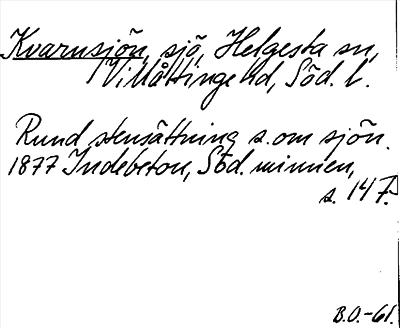 Kvarnsjön, sjö, Helgesta sn,
Villåttinge hd, Söd. l.
Rund stensättning s.om sjön.
1877 Indebetou, Söd. minnen,
s. 147.
B.O.-61.